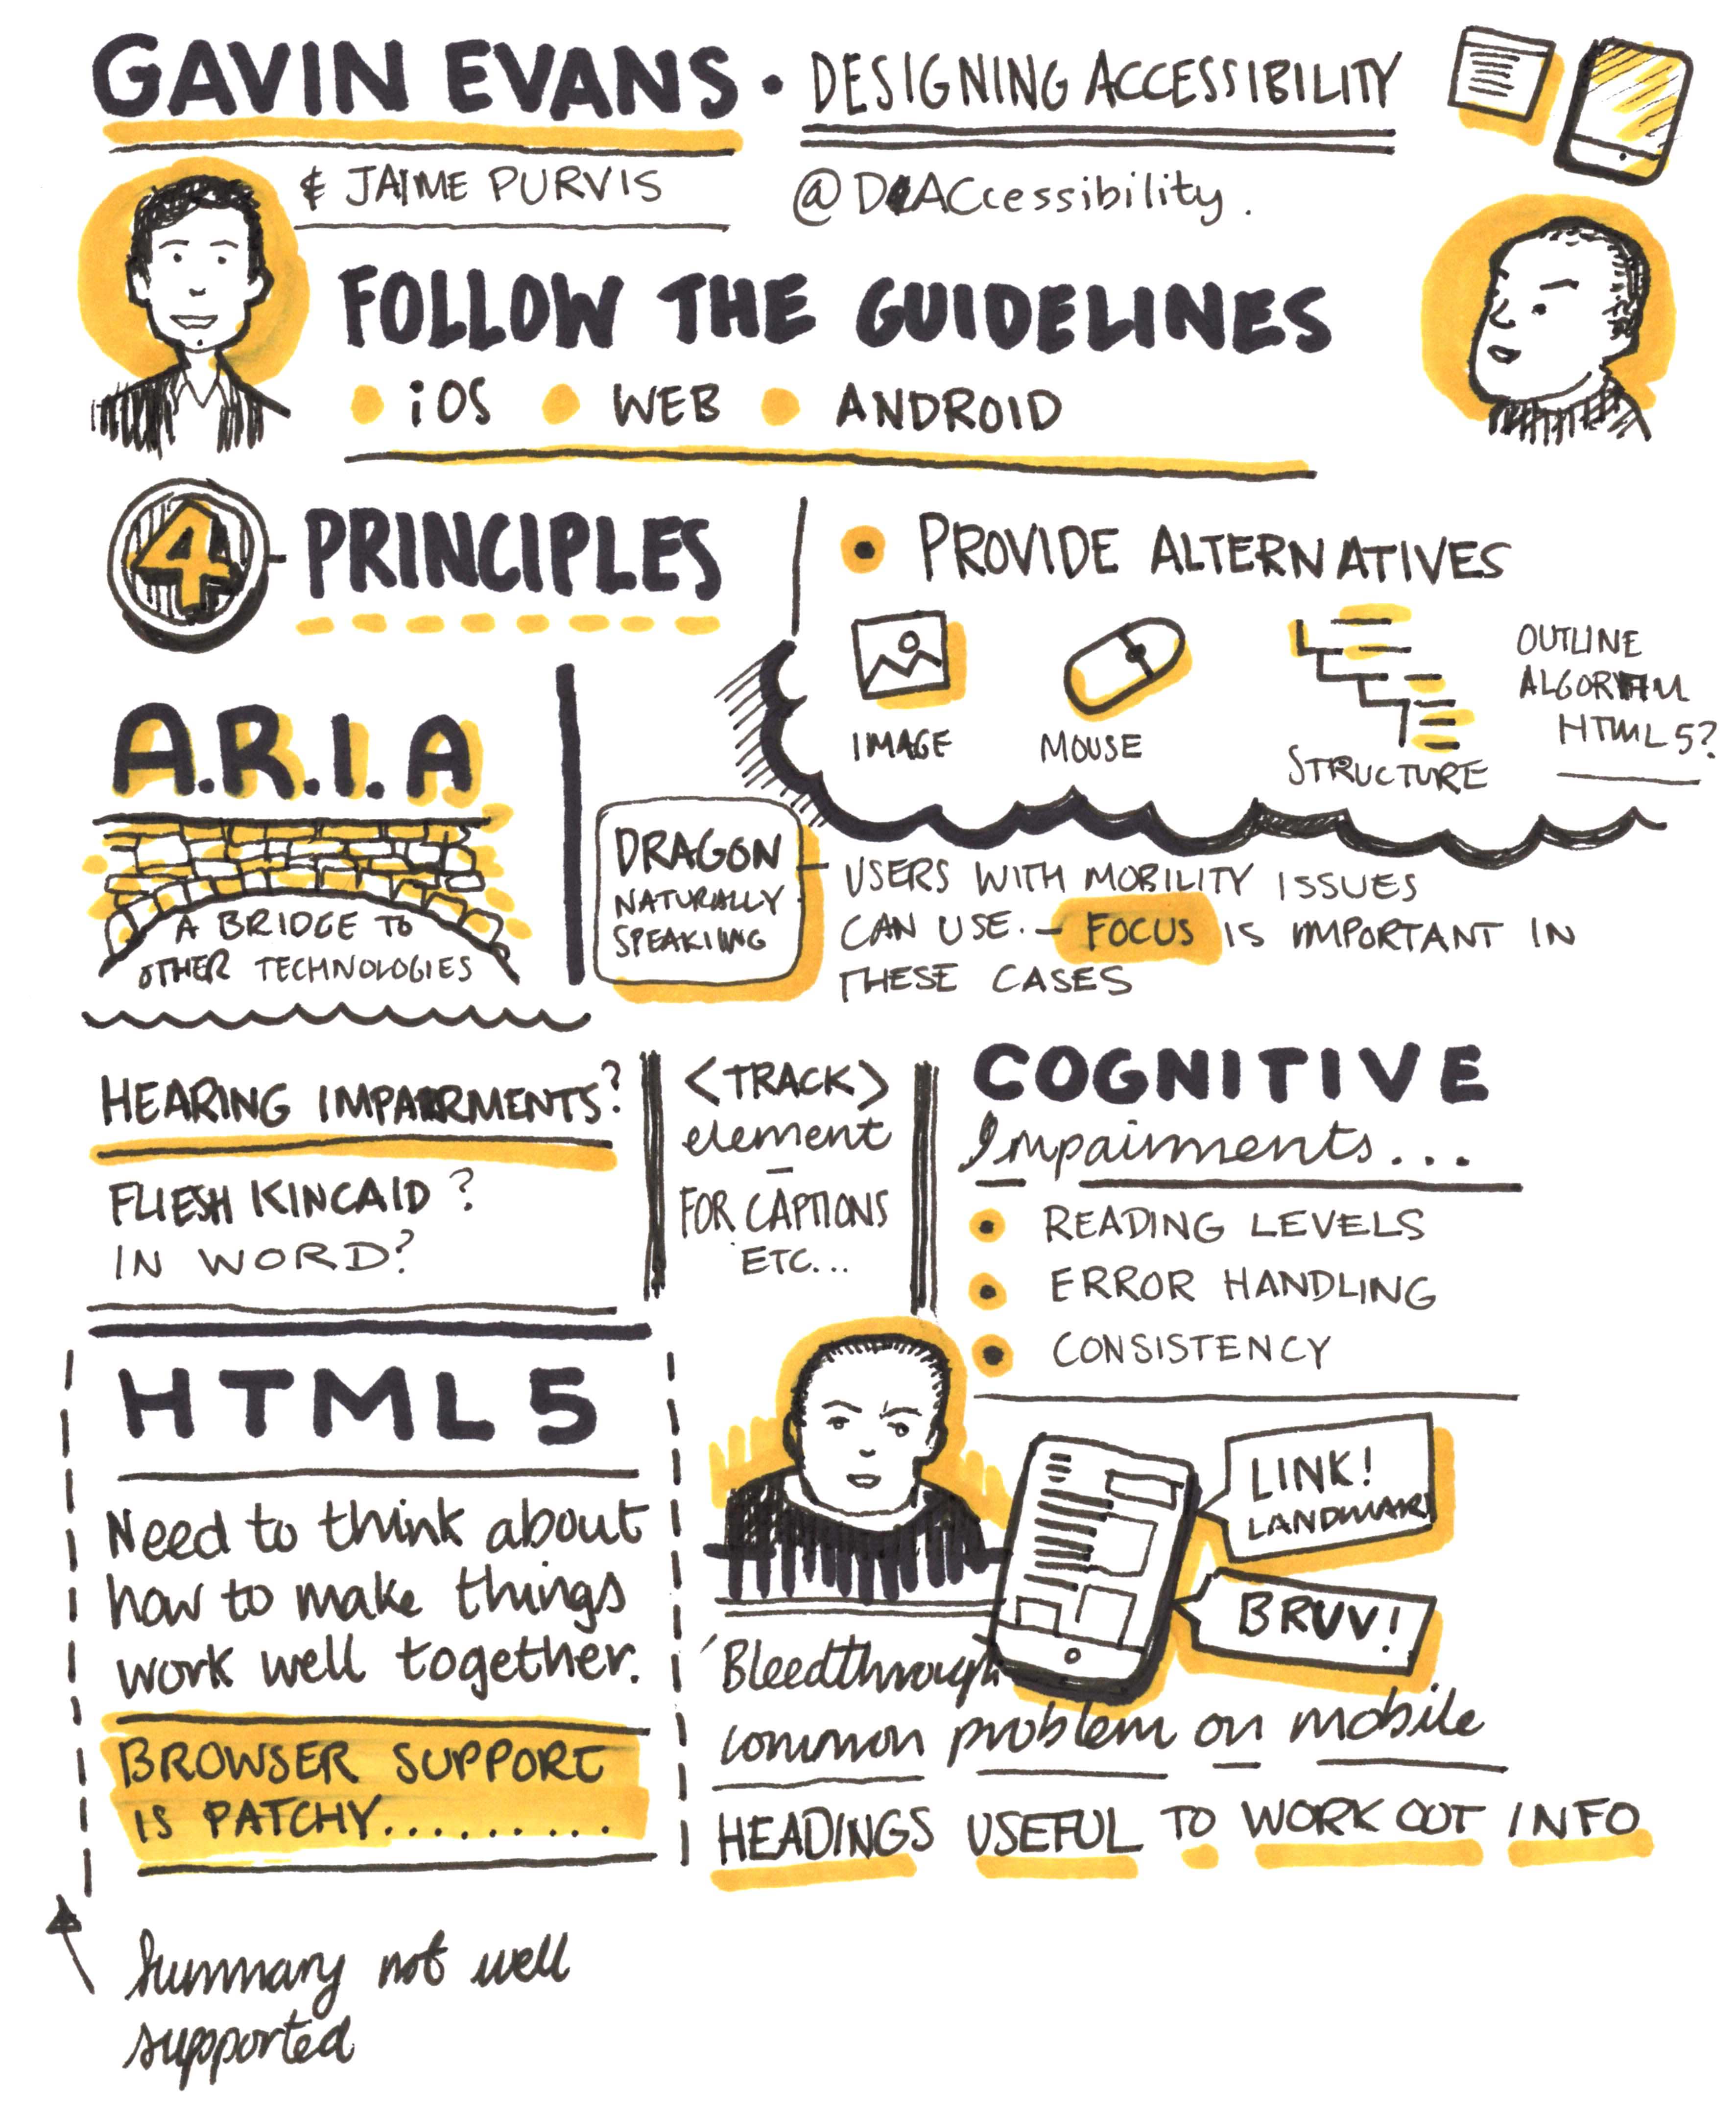 GAVIN EVANS • DESIGNING ACCESSIBILITY
& JAIME PURVIS
@DACCessibility.
FOLLOW THE GUIDELINES
• iOS • WEB • ANDROID
4 PRINCIPLES
• PROVIDE ALTERNATIVES
IMAGE
MOUSE
STRUCTURE
OUTLINE
ALGORITHM
HTML5?
A.R.I.A
A BRIDGE TO
OTHER TECHNOLOGIES
DRAGON
NATURALLY
SPEAKING
USERS WITH MOBILITY ISSUES
CAN USE. – FOCUS IS IMPORTANT IN
THESE CASES
HEARING IMPAIRMENTS?
FLIESH KINCAID?
IN WORD?
<TRACK>
element
–
FOR CAPTIONS
ETC...
COGNITIVE
Impairments...
• READING LEVELS
• ERROR HANDLING
• CONSISTENCY
HTML5
Need to think about
how to make things
work well together.
BROWSER SUPPORT
IS PATCHY..........
Summary not well
supported
LINK!
LANDMARK
BRUV!
'Bleedthrough
common problem on mobile
HEADINGS USEFUL TO WORK OUT INFO